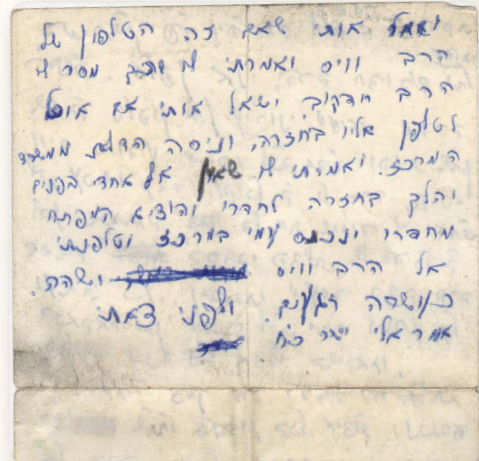 ושאל אותי שאם זה הטלפון של
הרב וויס ואמרתי לו שהרב מסר לי
הרב חדקוב ושאל אותי אם אוכל
לטלפן אליו בחזרה, וניסה הדלת ממשרד
המרכז. ואמרתי לו שאין אף אחד בפנים
והלך בחזרה לחדרו והוציא המפתח
מחדרו ונכנס עמי במרכז וטלפנתי
אל הרב וויס ושהה
כעשרה רגעים. ולפני צאתי
אמר אלי יישר כח